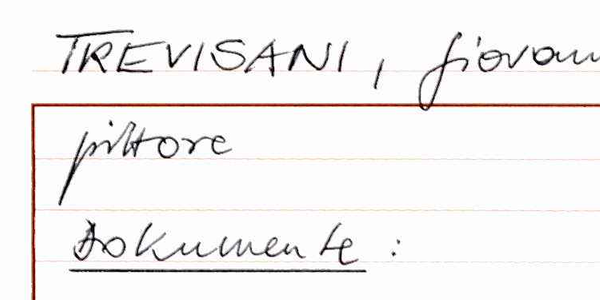 TREVISANI, Giovan
pittore
Dokumente :